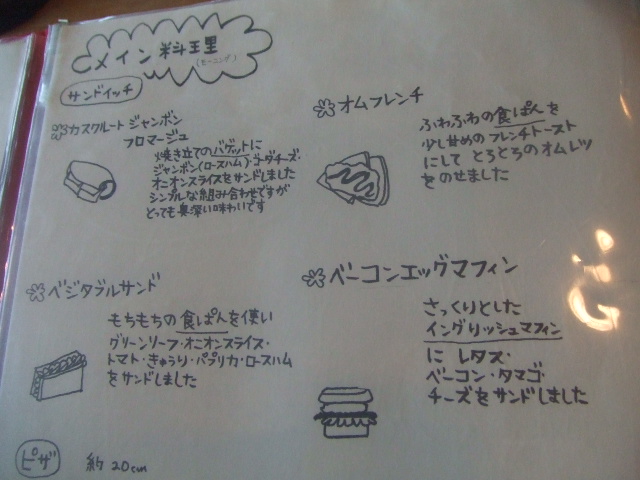 メイン料理
(モーニング)
サンドイッチ
カスクルート ジャンボン
フロマージュ
焼き立てのバゲットに
ジャンボン(ロースハム)・ゴーダチーズ・
オニオンスライスをサンドしました
シンプルな組み合わせですが
とっても奥深い味わいです
オムフレンチ
ふわふわの食ぱんを
少し甘めのフレンチトースト
にして とろとろのオムレツ
をのせました
ベジタブルサンド
もちもちの食ぱんを使い
グリーンリーフ・オニオンスライス・
トマト・きゅうり・パプリカ・ロースハム
をサンドしました
ベーコンエッグマフィン
さっくりとした
イングリッシュマフィン
に レタス・
ベーコン・タマゴ・
チーズをサンドしました
ピザ
約 20cm